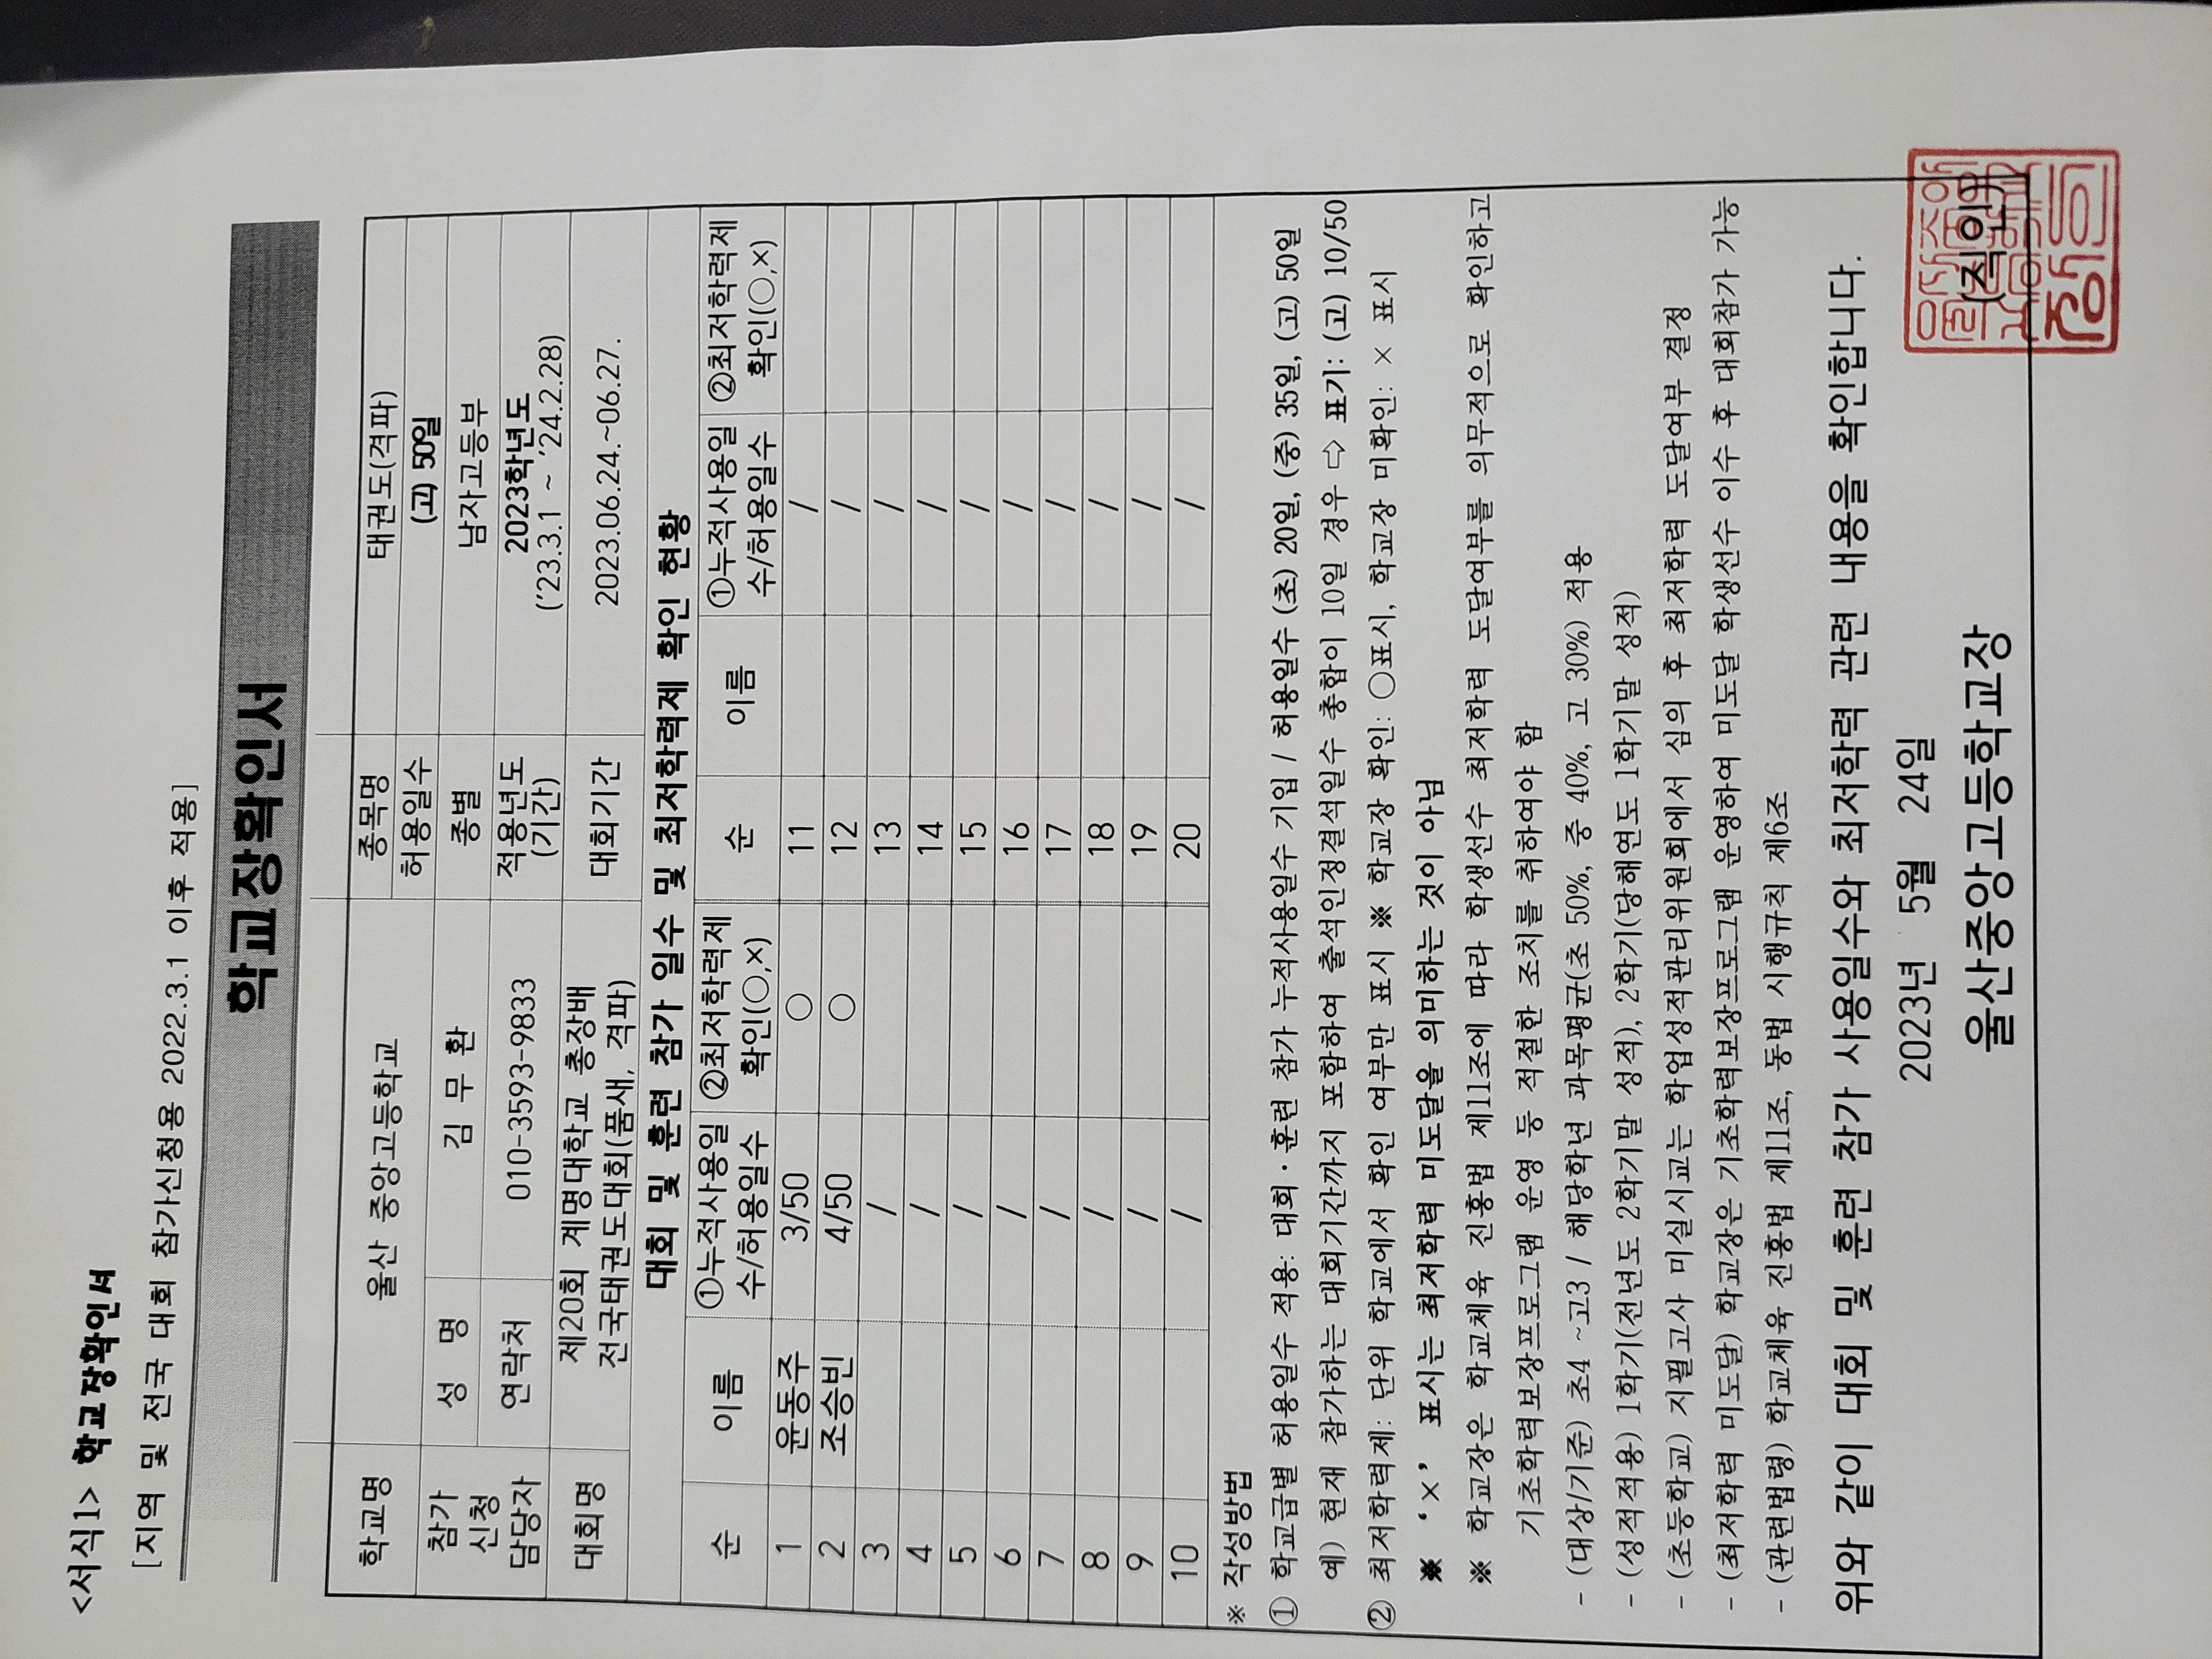 <서식1> 학교장확인서
[지역 및 전국 대회 참가신청용 2022.3.1 이후 적용]
학교장확인서
학교명 울산 중앙고등학교 종목명 태권도(격파)
허용일수 (고) 50일
참가 신청 담당자 성 명 김 무 환 종별 남자고등부
연락처 010-3593-9833 적용년도 (기간) 2023학년도 ('23.3.1 ~ '24.2.28)
대회명 제20회 계명대학교 총장배 전국태권도대회(품새, 격파) 대회기간 2023.06.24.~06.27.
대회 및 훈련 참가 일수 및 최저학력제 확인 현황
순 이름 ①누적사용일수/허용일수 ②최저학력제 확인(○,×) 순 이름 ①누적사용일수/허용일수 ②최저학력제 확인(○,×)
1 윤동주 3/50 ○ 11 /
2 조승빈 4/50 ○ 12 /
3 / 13 /
4 / 14 /
5 / 15 /
6 / 16 /
7 / 17 /
8 / 18 /
9 / 19 /
10 / 20 /
※ 작성방법
① 학교급별 허용일수 적용: 대회·훈련 참가 누적사용일수 기입 / 허용일수 (초) 20일, (중) 35일, (고) 50일
예) 현재 참가하는 대회기간까지 포함하여 출석인정결석일수 총합이 10일 경우 ⇨ 표기: (고) 10/50
② 최저학력제: 단위 학교에서 확인 여부만 표시 ※ 학교장 확인: ○표시, 학교장 미확인: × 표시
※ '×' 표시는 최저학력 미도달을 의미하는 것이 아님
※ 학교장은 학교체육 진흥법 제11조에 따라 학생선수 최저학력 도달여부를 의무적으로 확인하고
기초학력보장프로그램 운영 등 적절한 조치를 취하여야 함
- (대상/기준) 초4 ~고3 / 해당학년 과목평균(초 50%, 중 40%, 고 30%) 적용
- (성적적용) 1학기(전년도 2학기말 성적), 2학기(당해연도 1학기말 성적)
- (초등학교) 지필고사 미실시교는 학업성적관리위원회에서 심의 후 최저학력 도달여부 결정
- (최저학력 미도달) 학교장은 기초학력보장프로그램 운영하여 미도달 학생선수 이수 후 대회참가 가능
- (관련법령) 학교체육 진흥법 제11조, 동법 시행규칙 제6조
위와 같이 대회 및 훈련 참가 사용일수와 최저학력 관련 내용을 확인합니다.
2023년 5월 24일
울산중앙고등학교장 (직인)